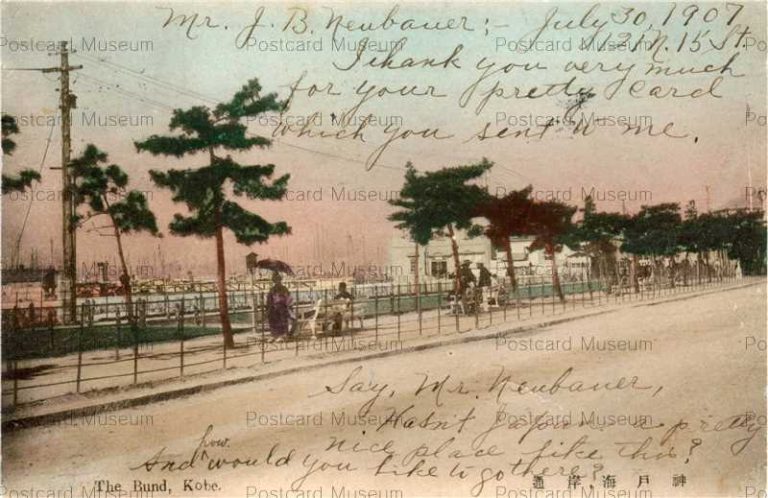 Mr. J. B. Neubauer;- July 30, 1907
1212 N. 15 St.
Thank you very much
for your pretty card
which you sent to me.
Say, Mr. Neubauer,
Hasn't Japan a pretty
nice place like this?
And how would you like to go there?
The Bund, Kobe.
神戸海岸通
Postcard Museum